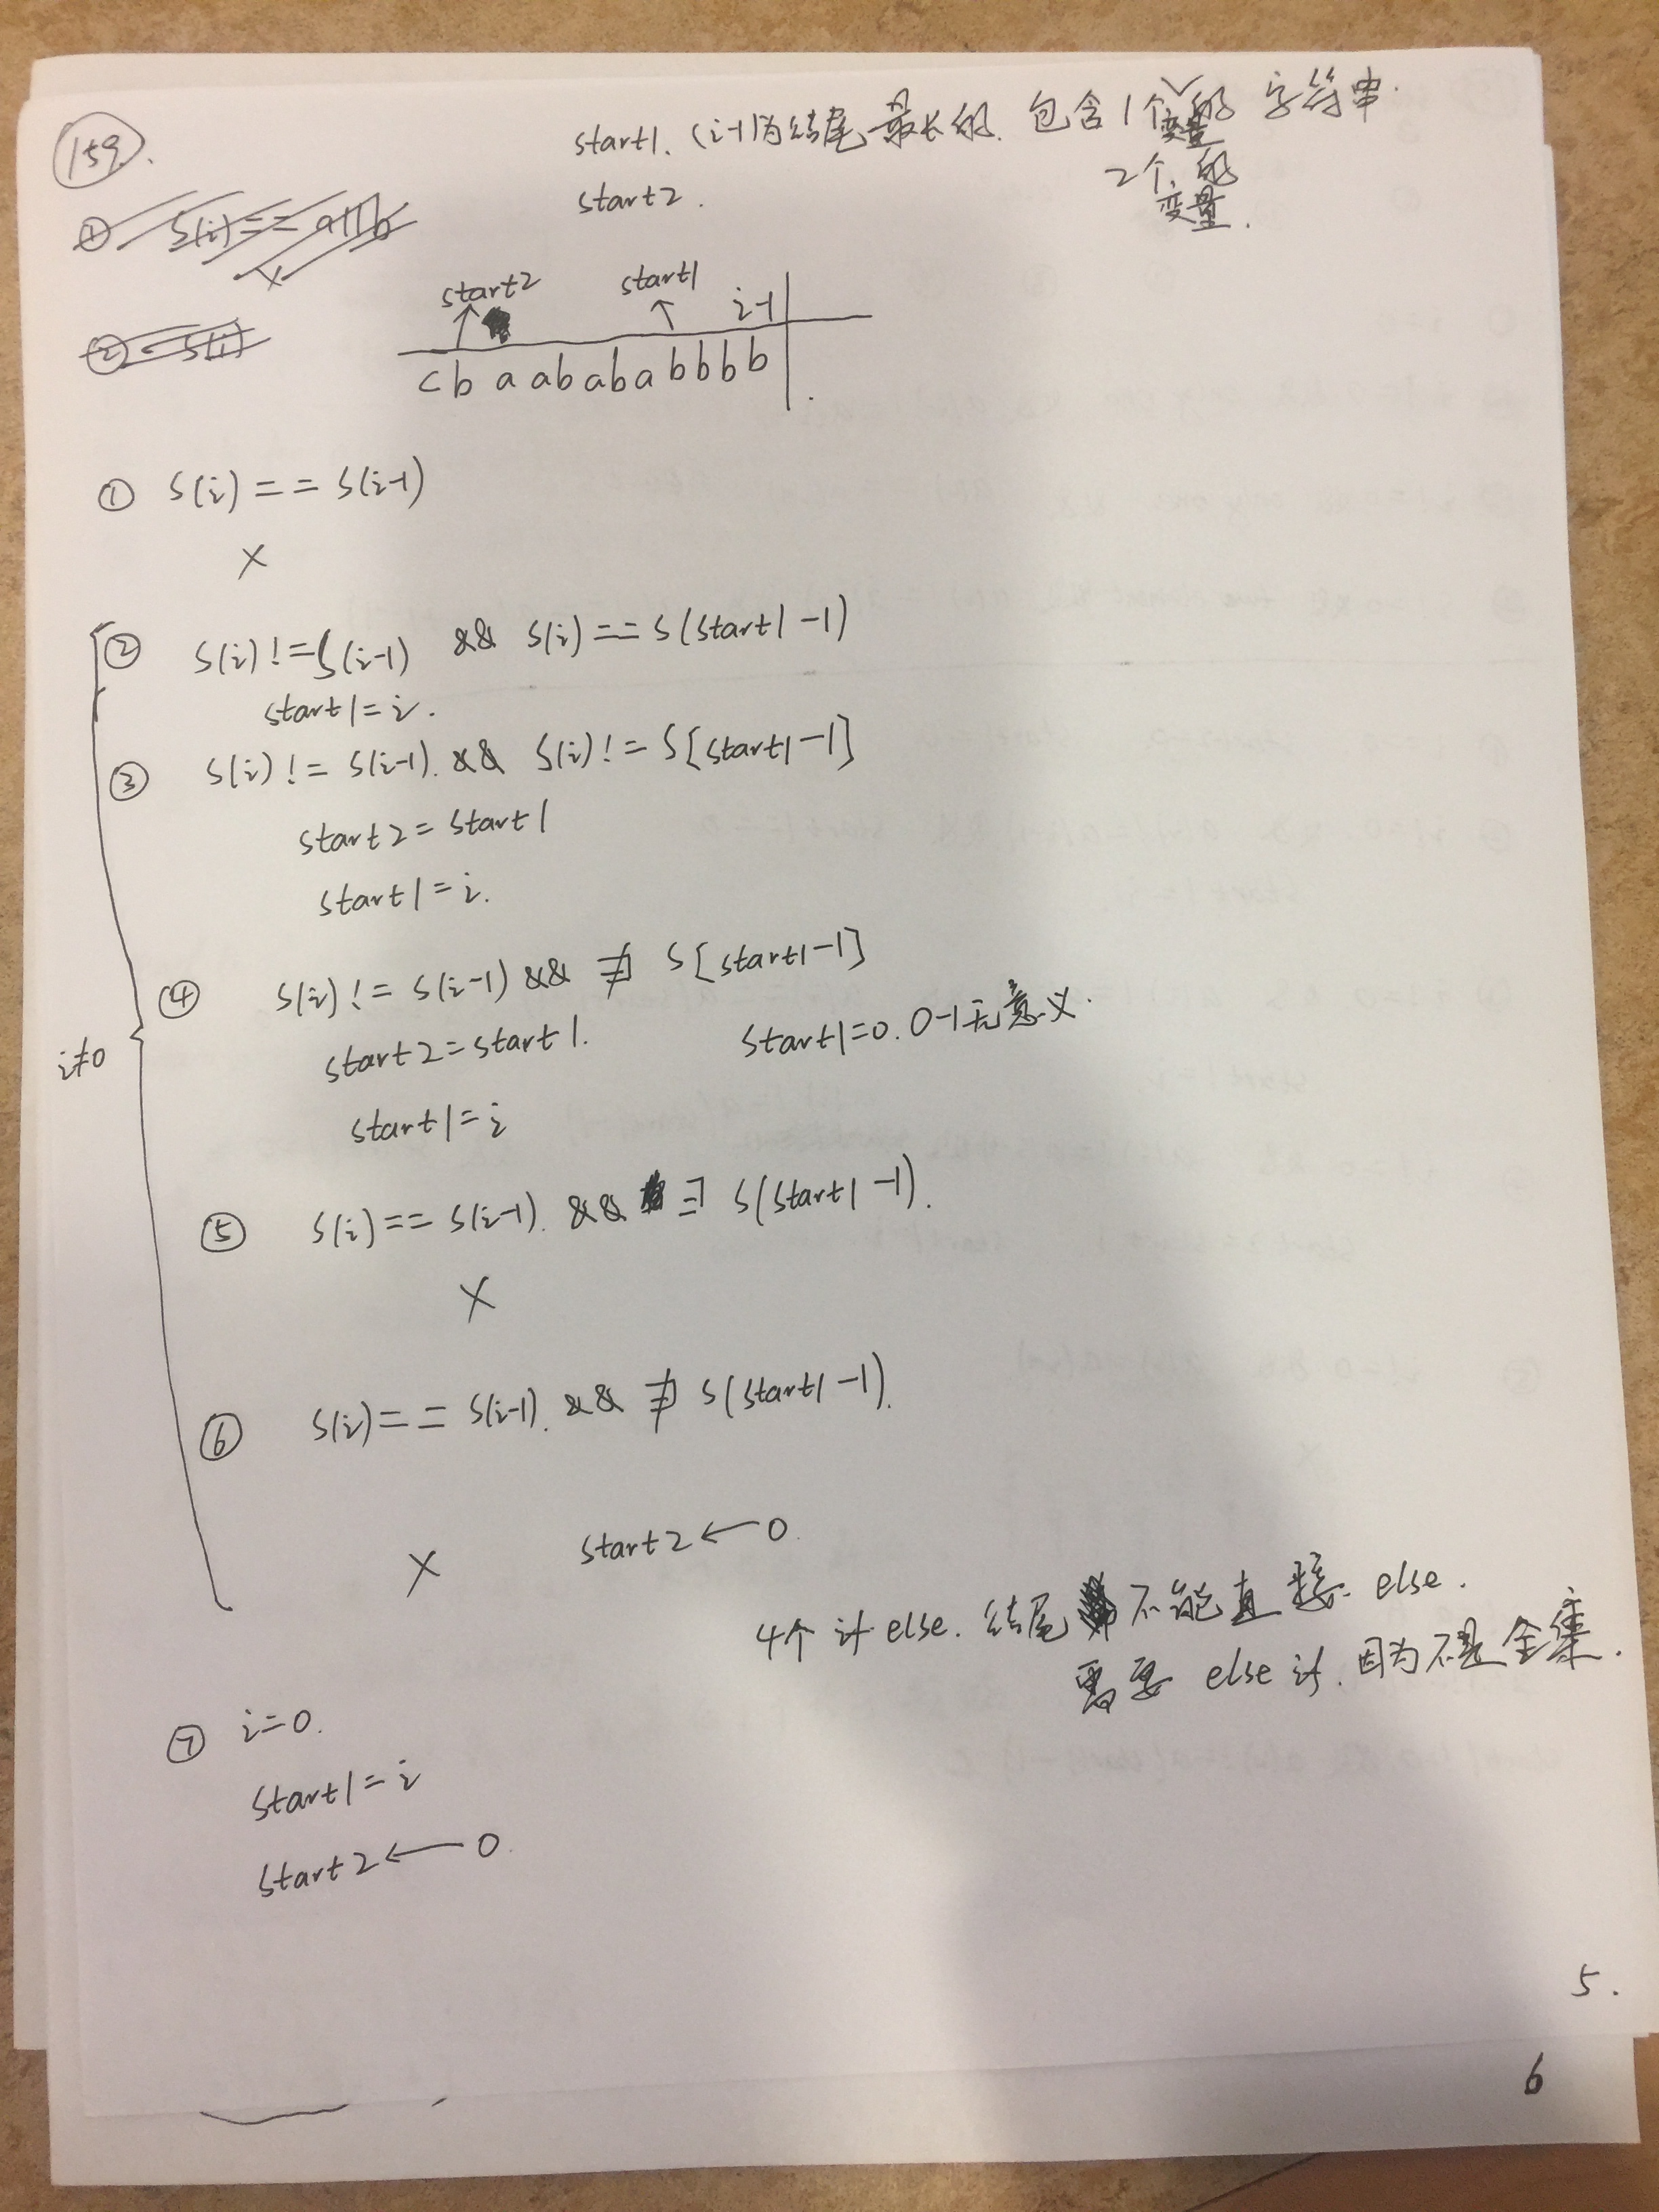 159.
start1. (i-1)为结尾最长的. 包含1个变量的 字符串.
start2. 2个变量的.
① S(i) == a||b
X
② S(i)
start2 start1 i-1
c b a ab aba bbbb
① S(i) == S(i-1)
X
② S(i) != S(i-1) && S(i) == S(start1-1)
start1=i.
③ S(i) != S(i-1). && S(i) != S[start1-1]
start2=start1
start1=i.
④ S(i) != S(i-1) && ∄ S[start1-1]
start2=start1. start1=0. 0-1无意义.
i≠0
start1=i
⑤ S(i) == S(i-1). && ∃ S(start1-1).
X
⑥ S(i) == S(i-1). && ∄ S(start1-1).
X start2 ← 0.
4个 if else. 结尾不能直接 else.
需要 else if. 因为不是全集.
⑦ i=0.
start1=i
start2 ← 0.
5.
6